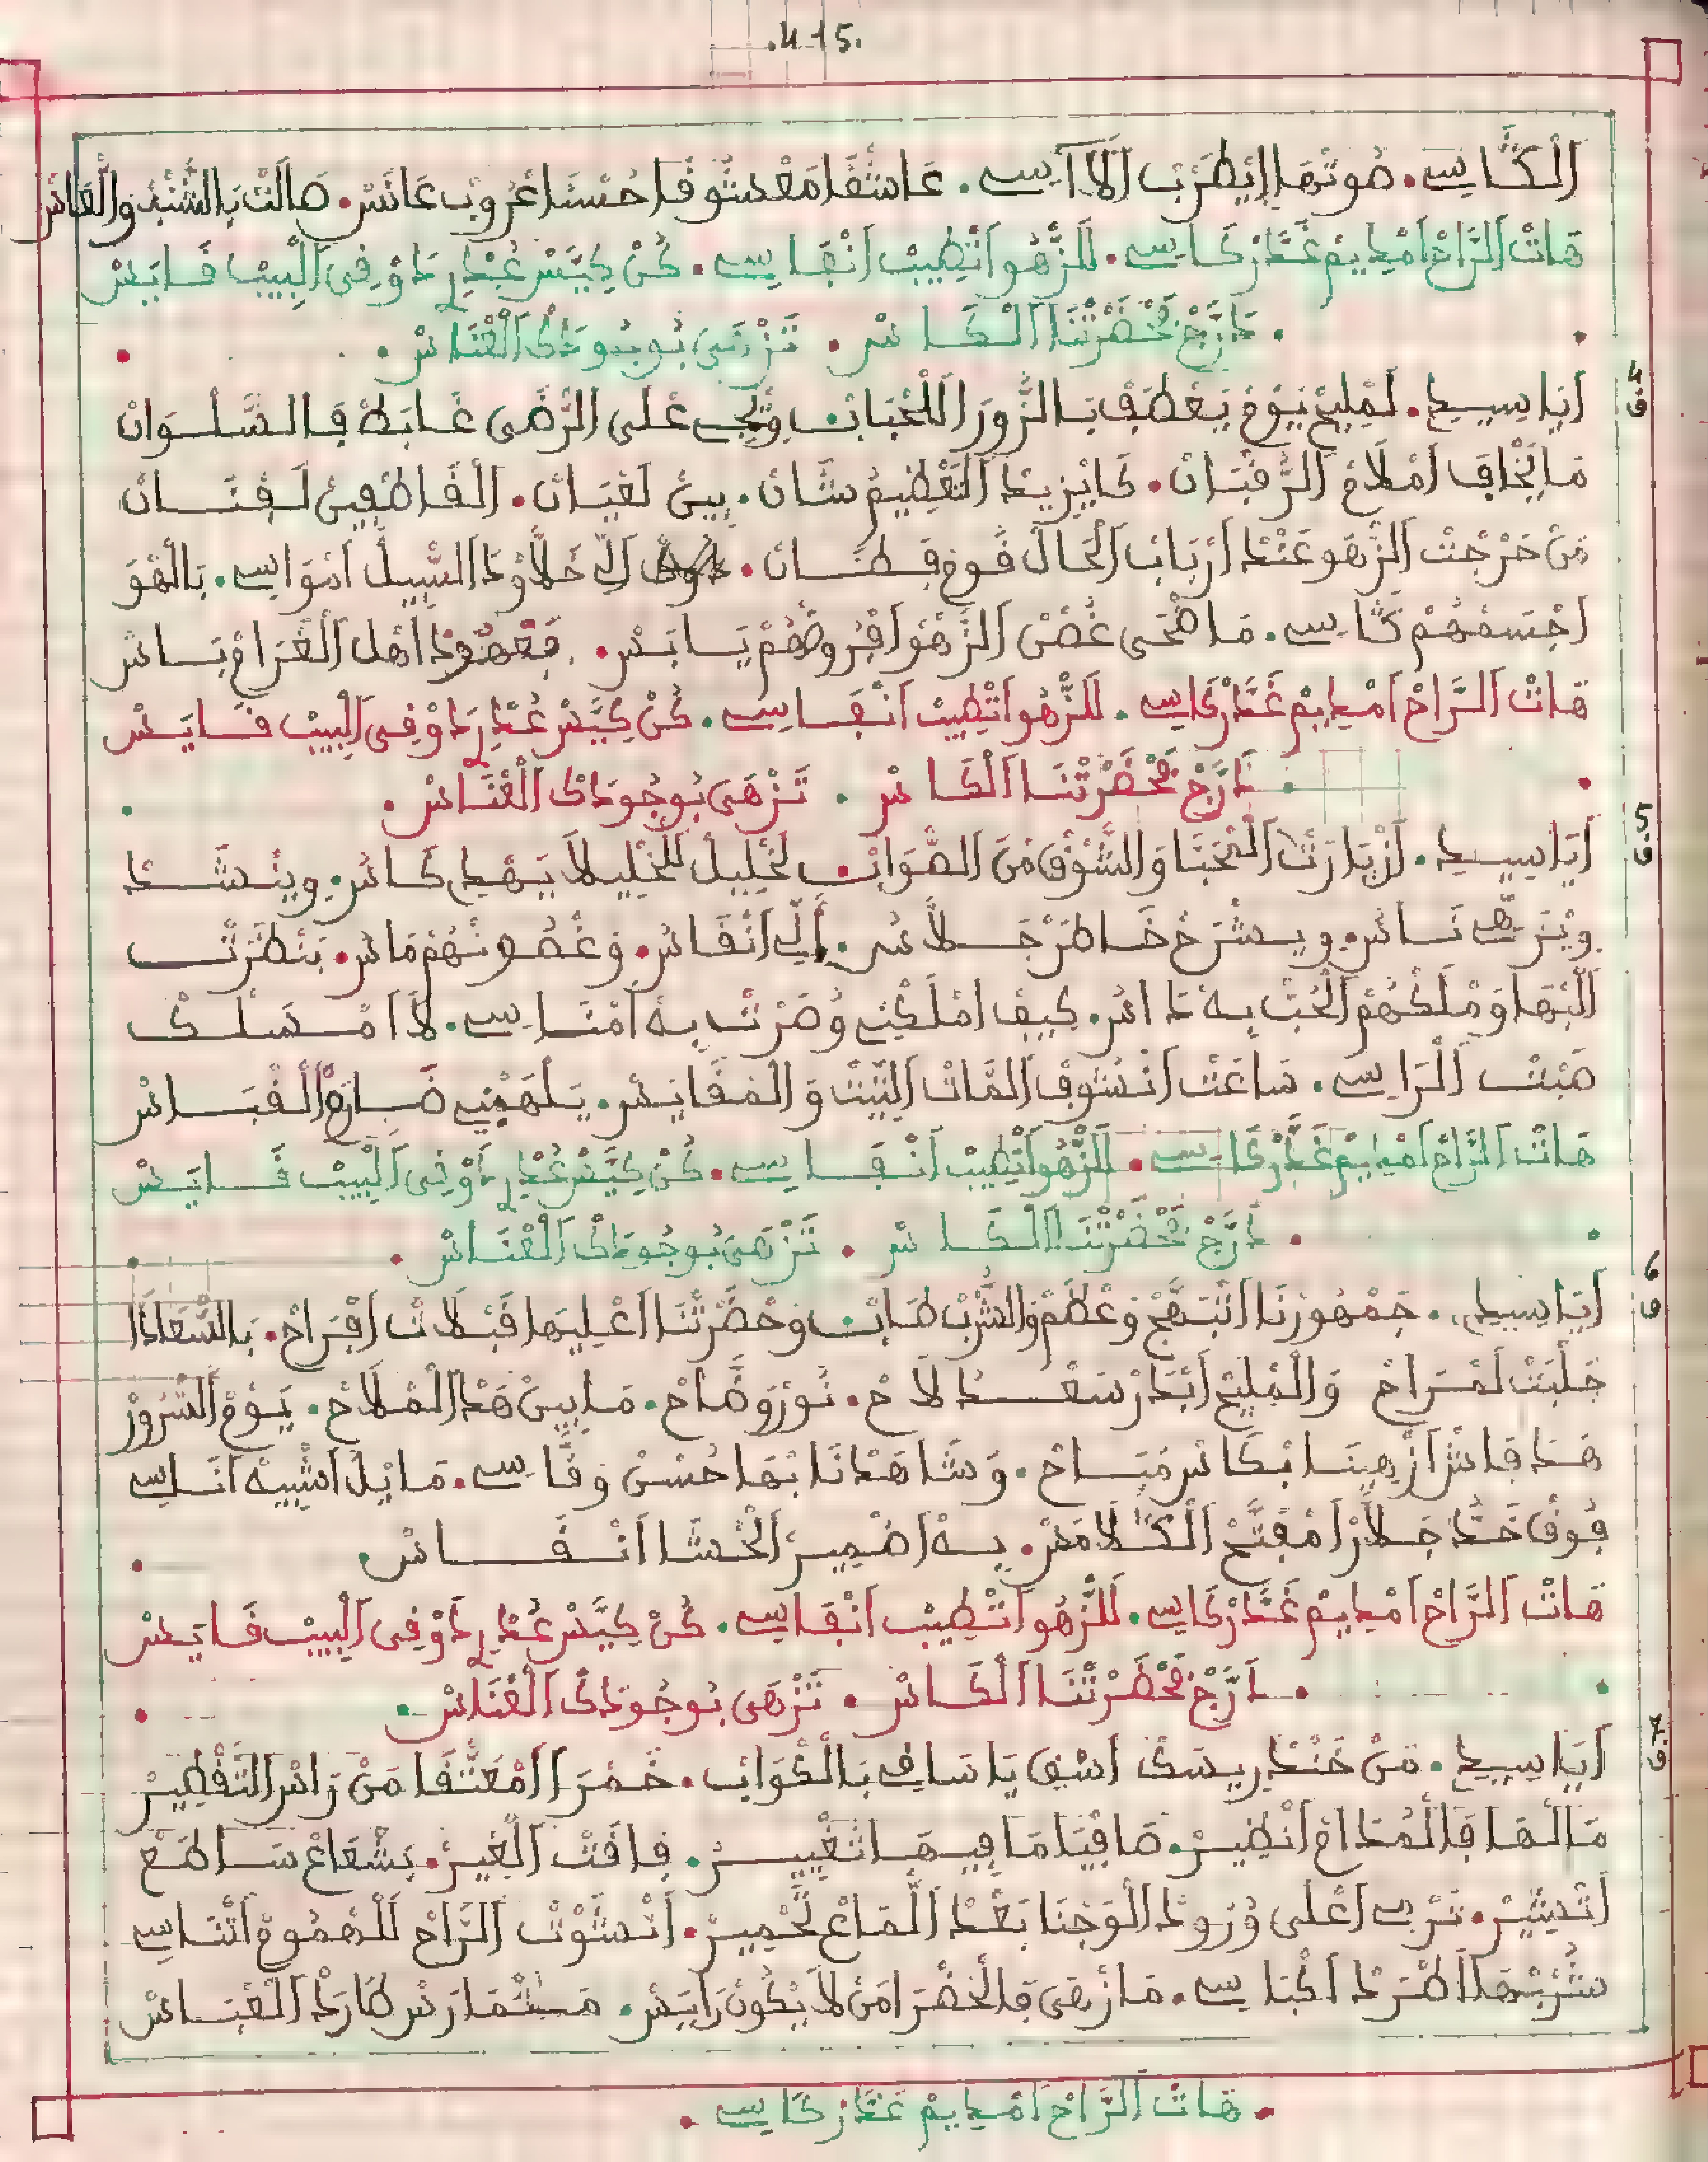 .415.
اَلْكَاسِي. هُوتْهَا اِيْطَرَّبْ اَلاَّ آسِي. عَاشْقَا مَعْشُوقَا حُسْنَا عْرُوبْ عَانَسْ. صَالَتْ بَالشَّنْبْ وَالْعَانَسْ
هَاتْ اَلرَّاحْ اَمْدِيمْ عَمَّرْ كَاسِي. لَلزّْهُو اَتْطِيبْ اَنْفَاسِي. كُنْ كِيَّسْ عُدْرِ دَاوْفِى اَلْبِيبْ فَايَسْ
. دَرَّجْ فْحَضْرْتْنَا اَلْكَاسْ . تَزْهَى بُوجُودَكْ اَلْعْنَاسْ .
4 ق
اَيَا سِيدِي. لَمْلِيحْ يَوْمْ يَعْطَفْ بَالزُّورَ اَللَّحْبَابْ وِيْجِي عْلَى اَلرّْضَى غَابَطْ فَالسَّلْوَانْ
مَا يْخَافْ اَمْلَامْ اَلرَّقْبَانْ. كَايْزِيدْ اَلتَّعْظِيمْ شَانْ. بِينْ لَعْيَانْ. اَلْفَاطْعِينْ لَفْتَانْ
مَنْ خَرْجَتْ اَلزّْهَو عَنْدْ اَرْبَابْ اَلْحَالْ فُوحْ فَطْنَانْ. اَلِّي خَلاَّوْ دَ اَلسّْبِيلْ اَمْوَاسِي. بَالْهْوَ
اَجْسَمْهُمْ كَاسِي. مَا ضْحَى غُصْنْ اَلزّْهَوْ اَفْرُوضْهُمْ يَابَسْ. فَعْهُودْ اَهْلْ اَلْغْرَامْ بَاسْ
هَاتْ اَلرَّاحْ اَمْدِيمْ عَمَّرْ كَاسِي. لَلزّْهُو اَتْطِيبْ اَنْفَاسِي. كُنْ كِيَّسْ عُدْرِ دَاوْفِى اَلْبِيبْ فَايَسْ
. دَرَّجْ فْحَضْرْتْنَا اَلْكَاسْ . تَزْهَى بُوجُودَكْ اَلْعْنَاسْ .
5 ق
اَيَا سِيدِي. اَزْيَارْتْ اَلْمْحَبَّا وَالشُّوقْ مَنَ اَلصّْوَابْ لَخْلِيلْ لَلْخْلِيلْ لاَ يَهْدِي كَاسْ. وِينْشَدْ
وِيْزَهِّي نَاسْ. وِيشْرَحْ خَاطَرْ جَلاَّسْ. اَلِّي اَنْفَاسْ. وَغْصُونْهُمْ مَاسْ. بَنْظَرْتْ
اَلْبْهَا وَمْلَكْهُمْ اَلْحُبْ بِهْ دَا اسْ. كِيفْ اَمْلَكْنِي وُصَرْتْ بِهْ اَمْنَاسِي. لاَ اَمْسَلْكْ
صَبْتْ اَلْرَاسِي. سَاعَتْ اَنْشُوفْ اَلدَّاتْ اَلْبِيتْ وَالْمْقَايَسْ. يَلْهَمْنِي صَارَمْ اَلْقْبَاسْ
هَاتْ اَلرَّاحْ اَمْدِيمْ عَمَّرْ كَاسِي. لَلزّْهُو اَتْطِيبْ اَنْفَاسِي. كُنْ كِيَّسْ عُدْرِ دَاوْفِى اَلْبِيبْ فَايَسْ
. دَرَّجْ فْحَضْرْتْنَا اَلْكَاسْ . تَزْهَى بُوجُودَكْ اَلْعْنَاسْ .
6 ق
اَيَا سِيدِي. جَمْهُورْنَا اَنْبَهَّجْ وَعْظَمْ وَالشُّرْبْ طَابْ وَحْضَرْتْنَا اَعْلِيهَا قَبْلاَتْ اَفْرَاحْ. بَالسّْعَادَا
جَلْبَتْ لَمْرَاحْ وَالْمْلِيحْ اَبْدَرْ سَعْدُ لاَحْ. نُورُ وَضَّاحْ. مَابِينْ هَدْ اَلْمْلاَحْ. يَوْمْ اَلسّْرُورْ
هَدَا فَاشْ اَزْهِينَا بْكَاسْ مْبَاحْ. وَشَاهَدْنَا بْهَا حُسْنْ وَقَّاسِي. مَايْلْ اَشْبِيهْ اَنَاسِي
فُوقْ خَدّْ جَلاَّرْ اَمْفَتَّحْ اَلْكْلاَمَسْ. بِهْ اَضْمِيرْ اَلْحْشَا اَنْفَاسْ
هَاتْ اَلرَّاحْ اَمْدِيمْ عَمَّرْ كَاسِي. لَلزّْهُو اَتْطِيبْ اَنْفَاسِي. كُنْ كِيَّسْ عُدْرِ دَاوْفِى اَلْبِيبْ فَايَسْ
. دَرَّجْ فْحَضْرْتْنَا اَلْكَاسْ . تَزْهَى بُوجُودَكْ اَلْعْنَاسْ .
7 ق
اَيَا سِيدِي. مَنْ خَنْدْرِيسَكْ اَسْقِي يَا سَاقِي بَالْكْوَابْ. خَمْرَ اَلْمْعَتّْقَا مَنْ رَاسْ اَلتَّقْطِيرْ
مَالْهَا فَالْمْدَامْ اَنْظِيرْ. صَافْيَا مَا فِيهَا تَغْيِيرْ. فَاقَتْ اَلْغِيرْ. بَشْعَاعْ سَاطَعْ
اَتْشِيرْ. تَرْبِي اَعْلَى وُرُودْ اَلْوَجْنَا بَعْدْ اَلْمَاعْ لَحْمِيرْ. اَنْشَوْتْ اَلرَّاحْ لَلْهْمُومْ اَتْنَاسِي
شُرْبْهَا اَطْرَدْ اَكْبَاسِي. مَا زْهَى فَالْحَضْرَا مَنْ لاَ يْكُونْ رَايَسْ. مَسْتْمَارَسْ طَارَدْ اَلْعْبَاسْ
. هَاتْ اَلرَّاحْ اَمْدِيمْ عَمَّرْ كَاسِي .